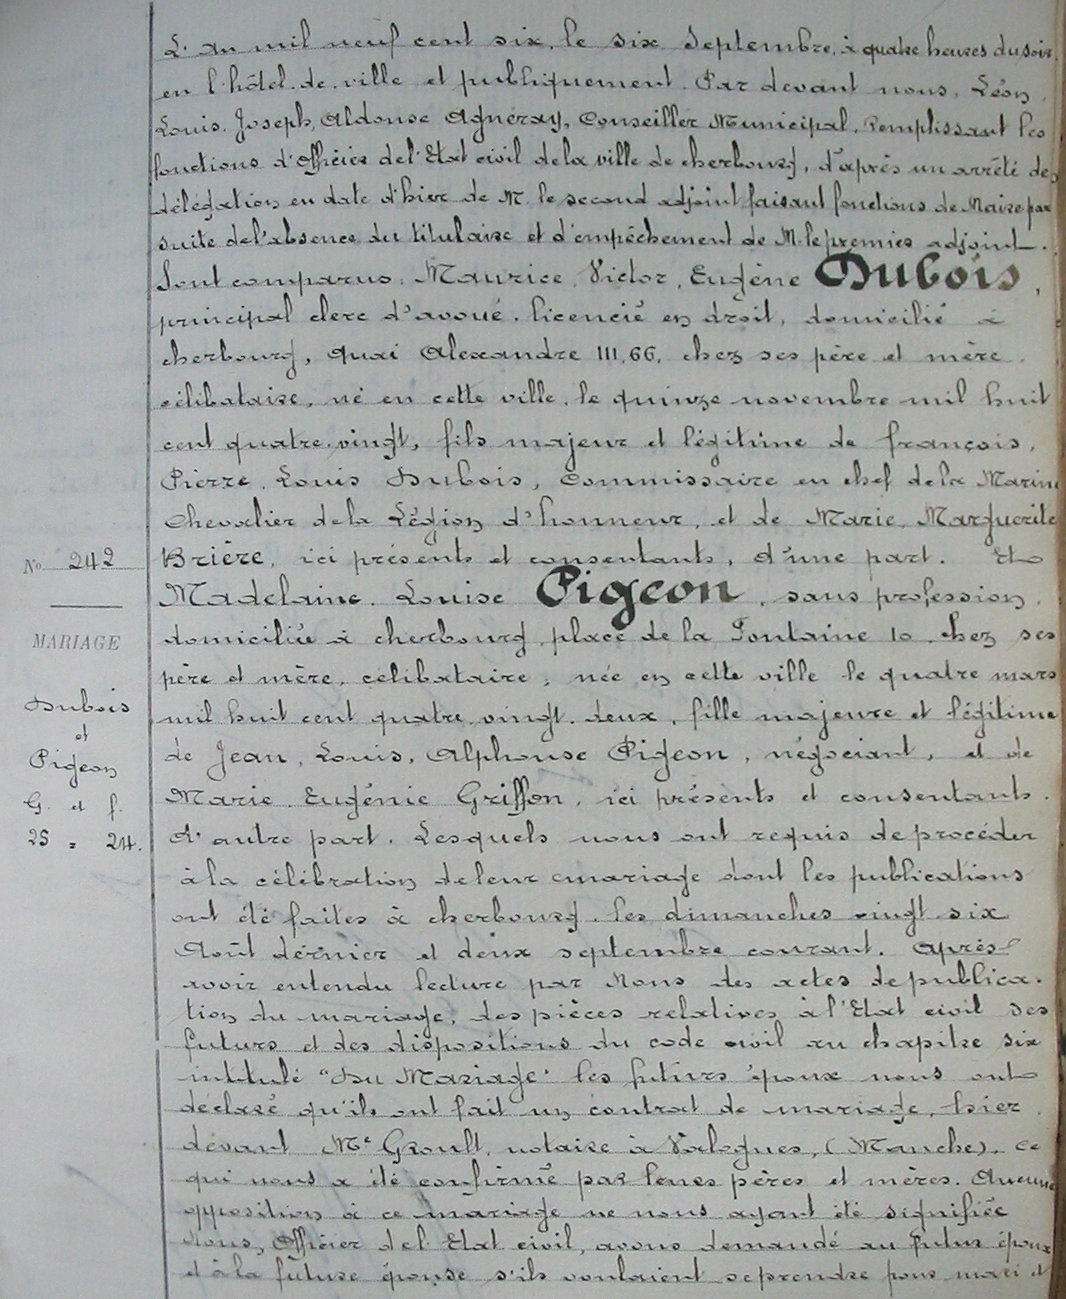 L'An mil neuf cent six, le six Septembre, à quatre heures du soir,
en l'hôtel de ville et publiquement. Par devant nous, Léon,
Louis, Joseph, Aldonse Agneray, Conseiller Municipal, remplissant les
fonctions d'Officier de l'Etat civil de la ville de cherbourg, d'après un arrêté de
délégation en date d'hier de M. le second adjoint faisant fonctions de Maire par
suite de l'absence du titulaire et d'empêchement de M. le premier adjoint.
Sont comparus : Maurice, Victor, Eugène Dubois,
principal clerc d'avoué, licencié en droit, domicilié à
cherbourg, quai Alexandre III, 66, chez ses père et mère,
célibataire, né en cette ville, le quinze novembre mil huit
cent quatre-vingt, fils majeur et légitime de françois,
Pierre, Louis Dubois, Commissaire en chef de la Marine
Chevalier de la Légion d'honneur, et de Marie, Marguerite
Brière, ici présents et consentants, d'une part. Et
Madelaine, Louise Pigeon, sans profession,
domiciliée à cherbourg, place de la Fontaine 10, chez ses
père et mère, célibataire, née en cette ville le quatre mars
mil huit cent quatre-vingt-deux, fille majeure et légitime
de Jean, Louis, Alphonse Pigeon, négociant, et de
Marie, Eugénie Griffon, ici présents et consentants,
d'autre part. Lesquels nous ont requis de procéder
à la célébration de leur mariage dont les publications
ont été faites à cherbourg les dimanches vingt six
Août dernier et deux septembre courant. Après
avoir entendu lecture par Nous des actes de publica-
tion du mariage, des pièces relatives à l'Etat civil des
futurs et des dispositions du code civil au chapitre six
intitulé "Du Mariage" les futurs époux nous ont
déclaré qu'ils ont fait un contrat de mariage, hier,
devant Me Groult, notaire à Valognes, (Manche), ce
qui nous a été confirmé par leurs pères et mères. Aucune
opposition à ce mariage ne nous ayant été signifiée
Nous, Officier de l'Etat civil, avons demandé au futur époux
et à la future épouse s'ils voulaient se prendre pour mari et
No 242
MARIAGE
Dubois
et
Pigeon
G. et f.
25 = 24.